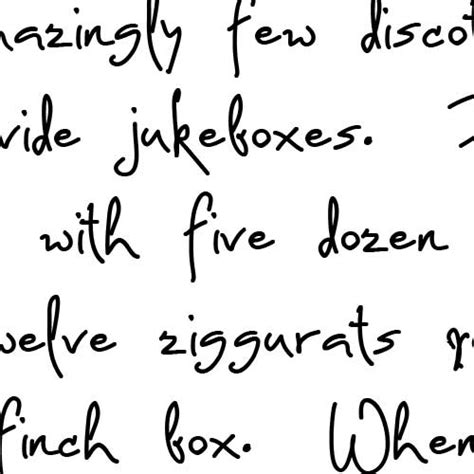 mazingly few disco
vide jukeboxes.
with five dozen
welve ziggurats
finch box. When